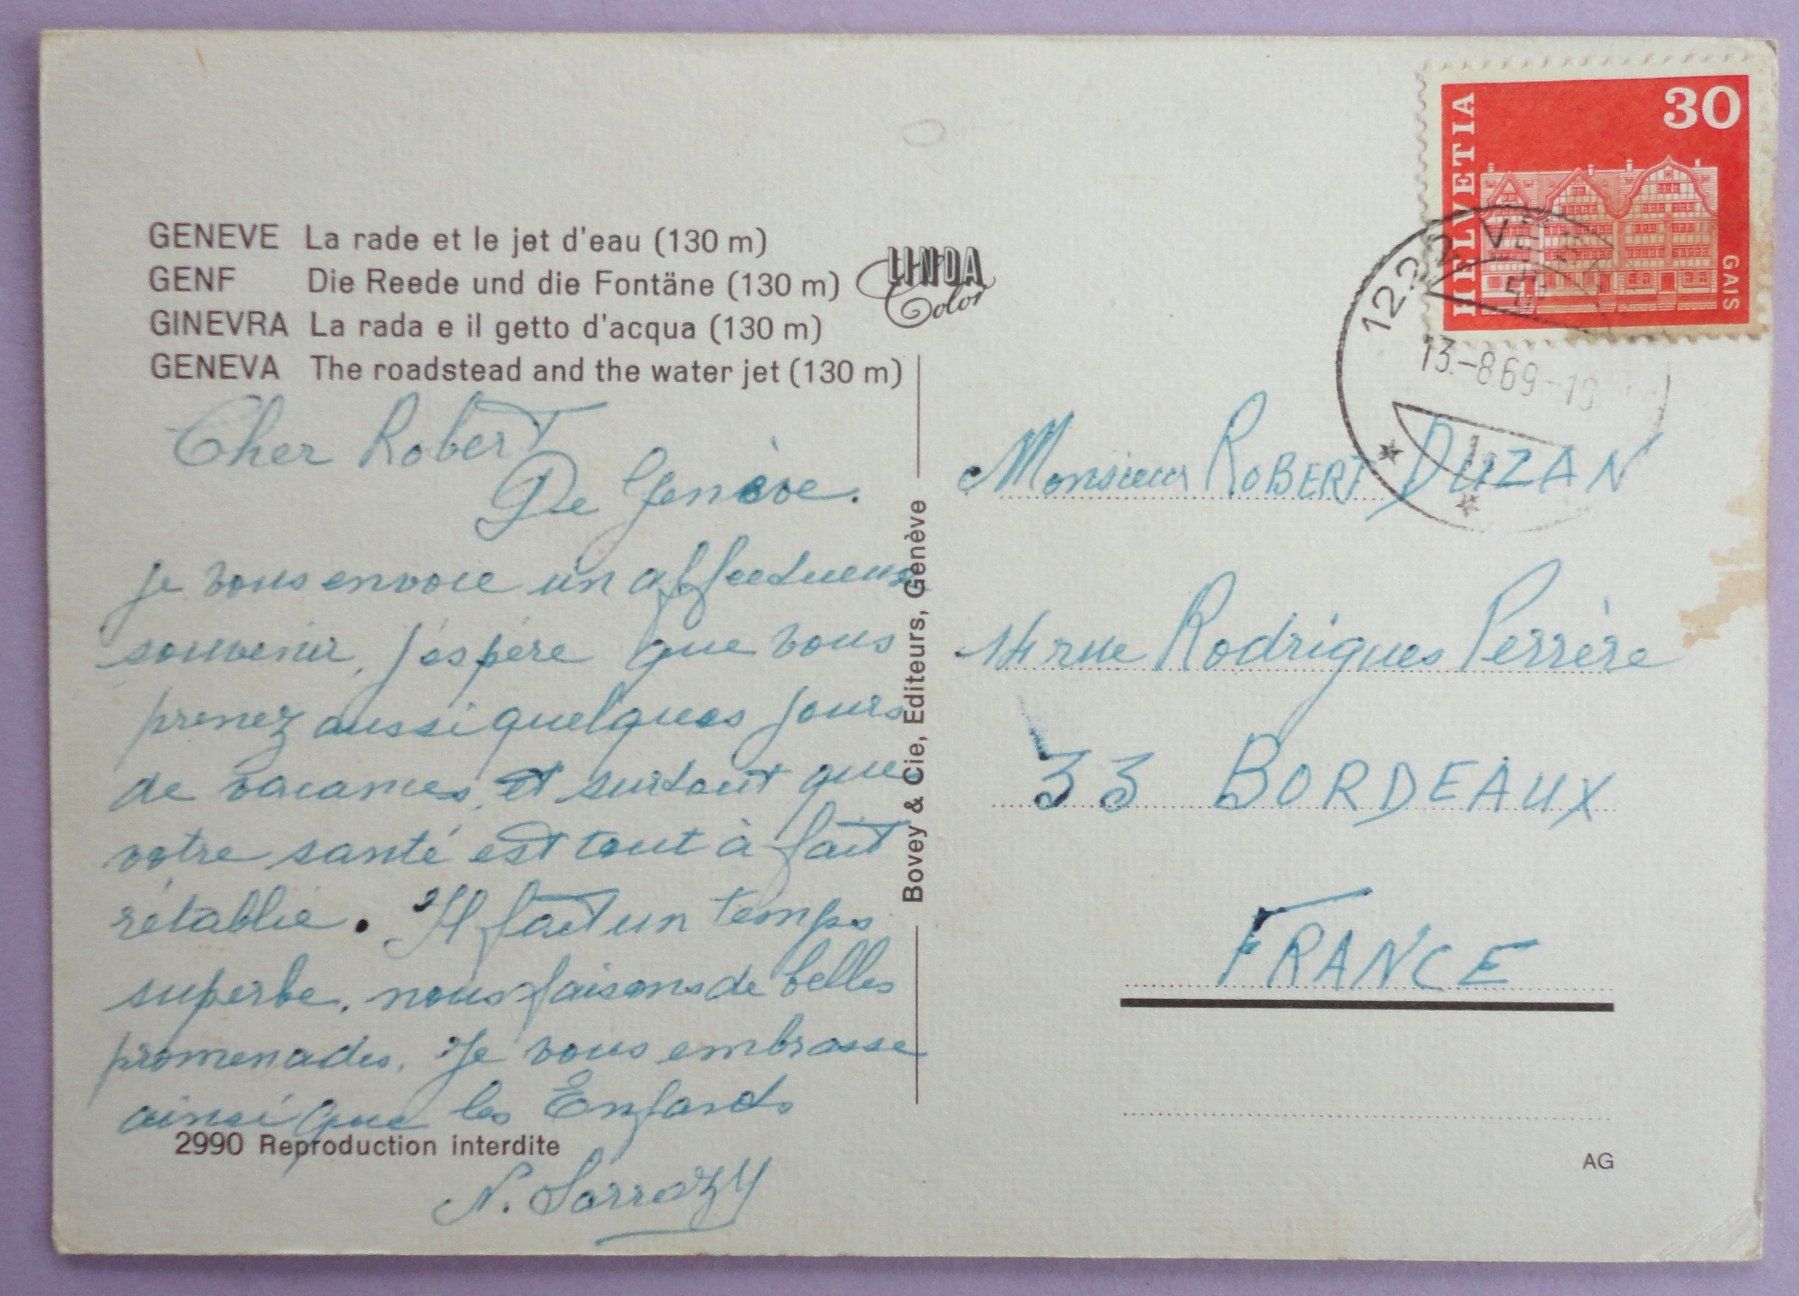 GENEVE La rade et le jet d'eau (130 m)
GENF Die Reede und die Fontäne (130 m)
GINEVRA La rada e il getto d'acqua (130 m)
GENEVA The roadstead and the water jet (130 m)
LINDA
Color
Cher Robert
De Genève.
je vous envoie un affectueux
souvenir, j'éspére que vous
prenez aussi quelques jours
de vacances, et surtout que
votre santé est tout à fait
rétablie. Il fait un temps
superbe, nous faisons de belles
promenades. Je vous embrasse
ainsi que les Enfants
2990 Reproduction interdite
N. Sarrazy
Bovey & Cie, Editeurs, Genève
HELVETIA
30
GAIS
1222
13.-8.69-19
Monsieur ROBERT DUZAN
14 rue Rodrigues Perrère
33 BORDEAUX
FRANCE
AG